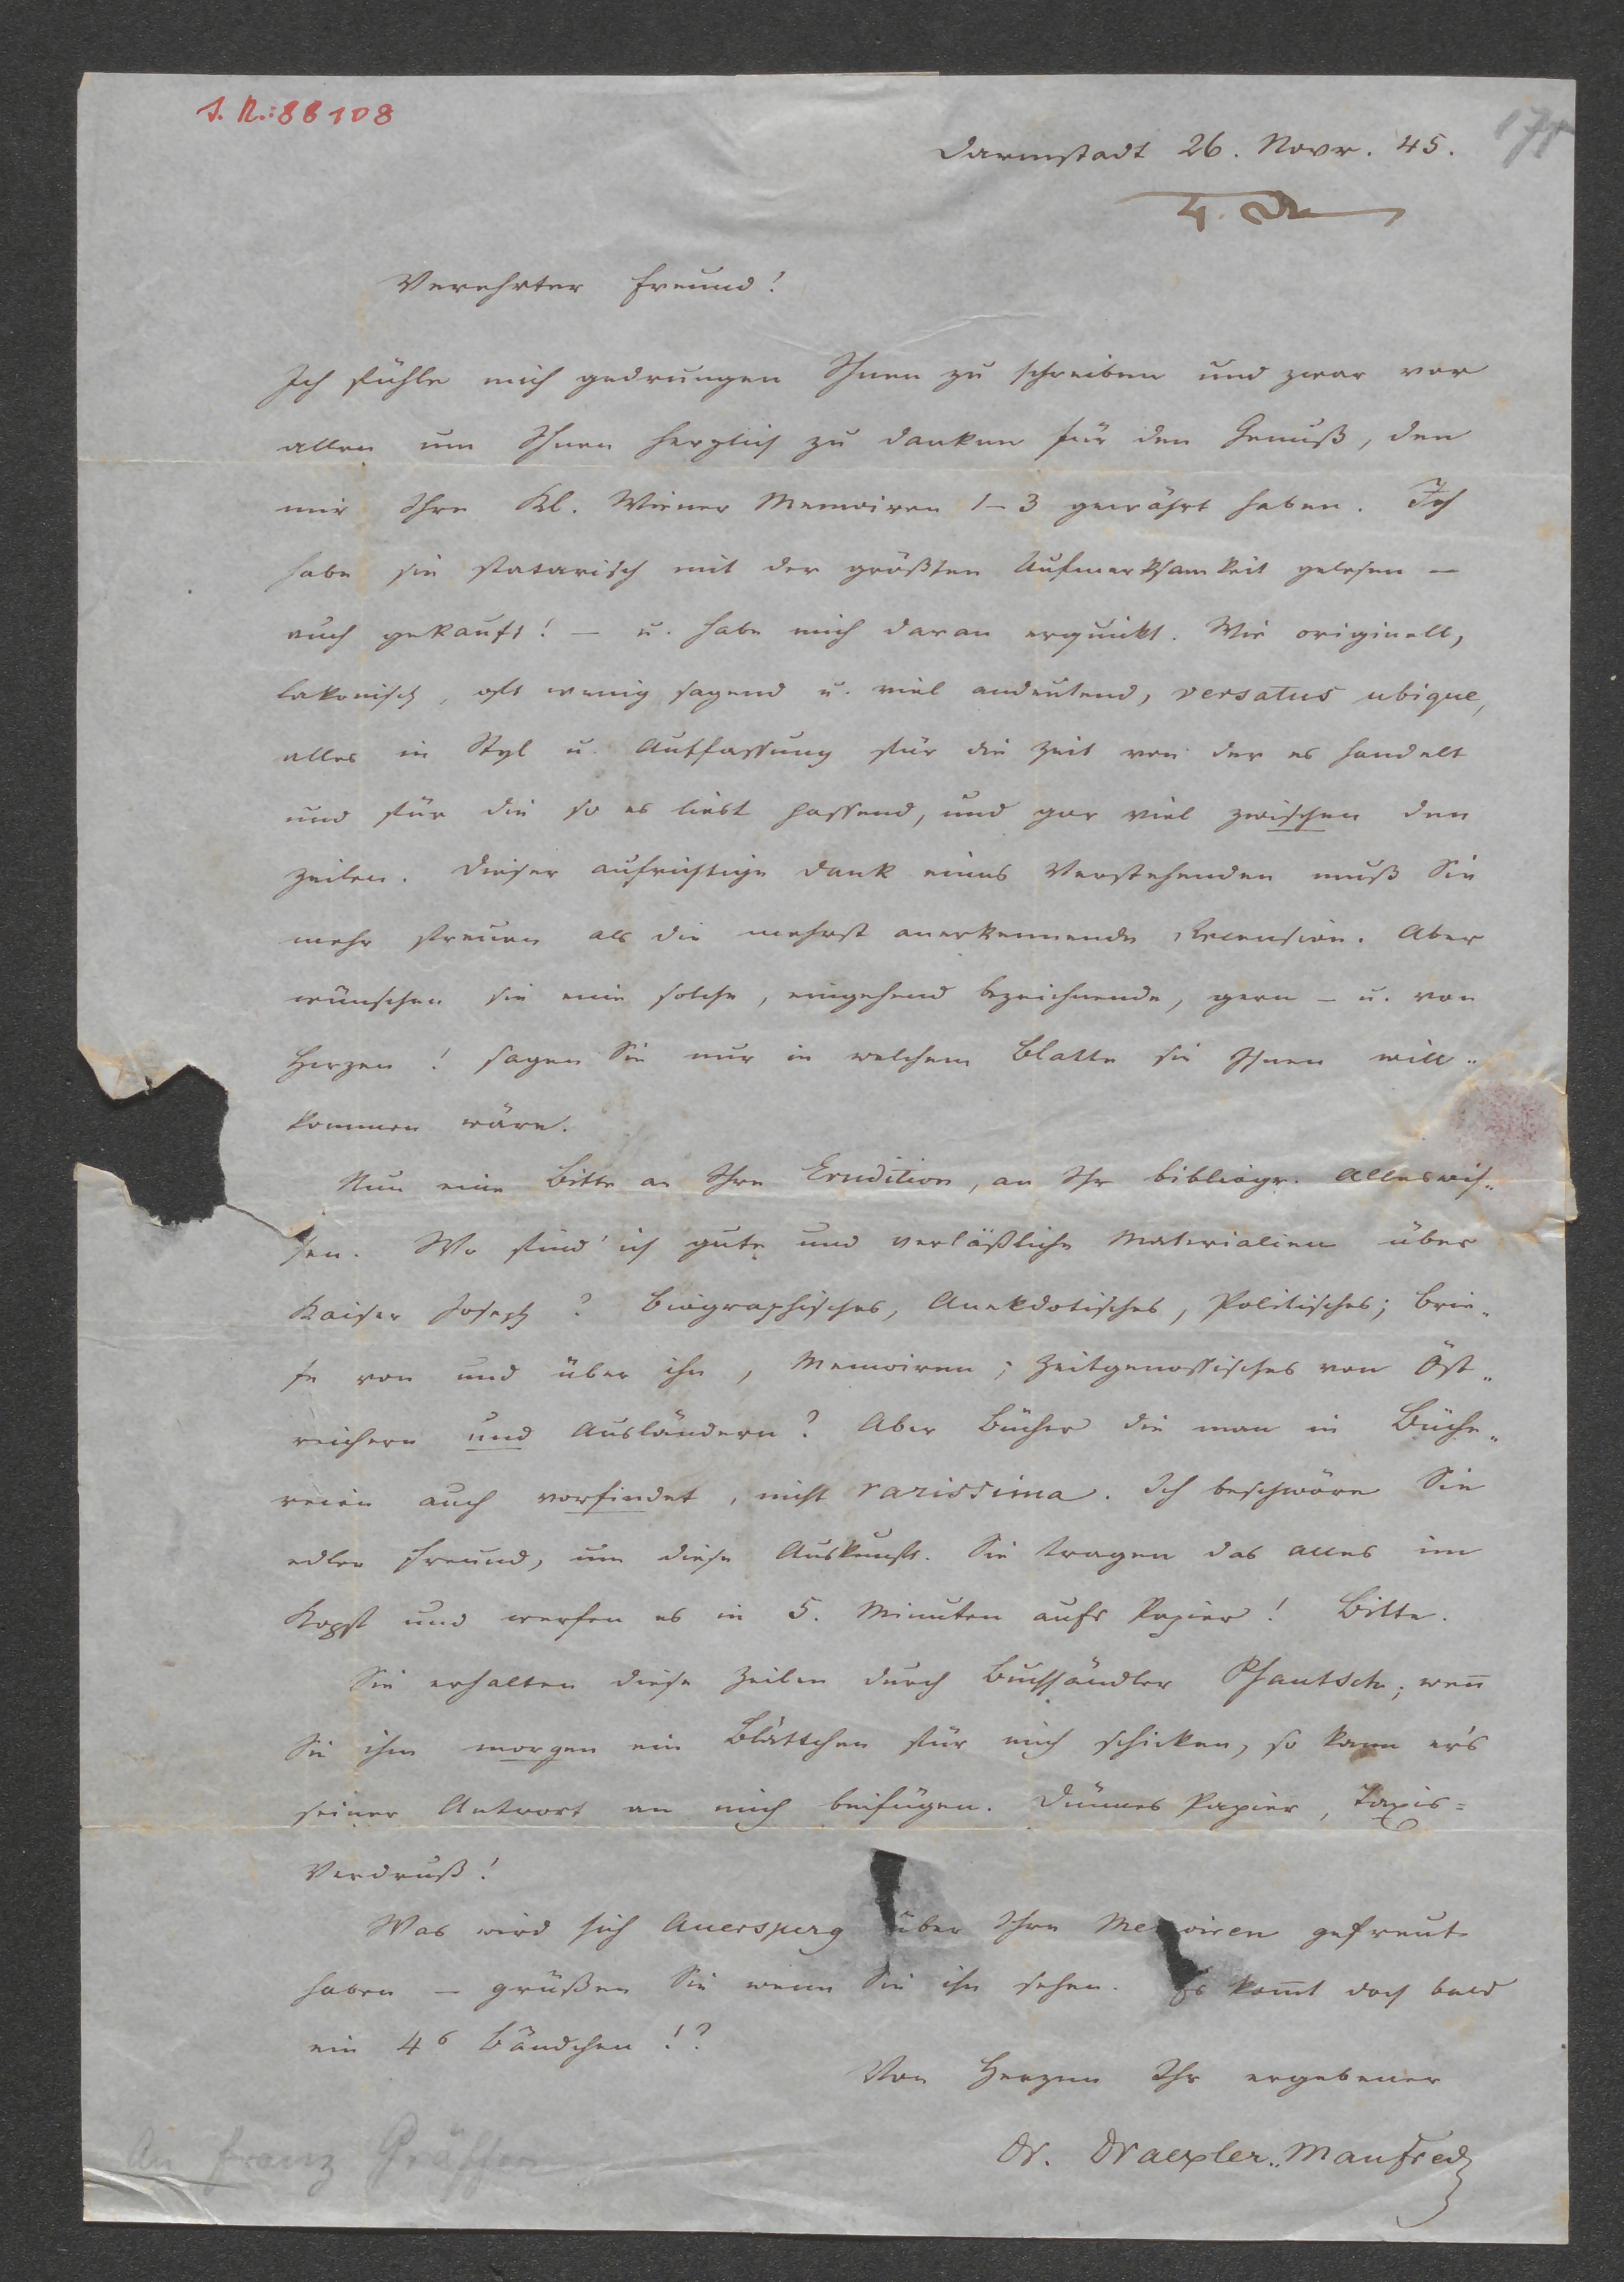 I. N.: 88108
Darmstadt 26. Novr. 45.
Verehrter Freund!
Ich fühle mich gedrungen Ihnen zu schreiben und zwar vor
allen um Ihnen herzlich zu danken für den Genuß, den
mir Ihre Kl. Wiener Memoiren 1–3 gewährt haben. Ich
habe sie statarisch mit der größten Aufmerksamkeit gelesen –
auch gekauft! – u. habe mich daran erquickt. Wie originell,
lakonisch, oft wenig sagend u. viel andeutend, versatus ubique,
alles in Styl u. Auffassung für die Zeit von der es handelt
und für die so es liest passend, und gar viel zwischen den
Zeilen. Dieser aufrichtige Dank eines Verstehenden muß Sie
mehr freuen als die mehrst anerkennende Recension. Aber
wünschen sie eine solche, eingehend bezeichnende, gern – u. von
Herzen! sagen Sie nur in welchem Blatte sie Ihnen will„
kommen wäre.
Nun eine Bitte an Ihre Erudition, an Ihr bibliogr. Alleswis„
sen. Wo find' ich gute und verläßliche Materialien über
Kaiser Joseph? Biographisches, Anekdotisches, Politisches; Brie„
fe von und über ihn, Memoiren; Zeitgenossisches von Öst„
reichern und Ausländern? Aber Bücher die man in Büche„
reien auch vorfindet, nicht rarissima. Ich beschwöre Sie
edler Freund, um diese Auskunft. Sie tragen das alles im
Kopf und werfen es in 5. Minuten aufs Papier! Bitte.
Sie erhalten diese Zeilen durch Buchhändler Pfautsch; wen̄
Sie ihm morgen ein Blättchen für mich schicken, so kann er's
seiner Antwort an mich beifügen. Dünnes Papier, Taxis=
Verdruß!
Was wird sich Auersperg über Ihre Memoiren gefreut
haben – grüßen Sie wenn Sie ihn sehen. Es kom̄t doch bald
ein 4s Bändchen!?
Von Herzen Ihr ergebener
Dr. Draexler-Manfred
An Franz Gräffer